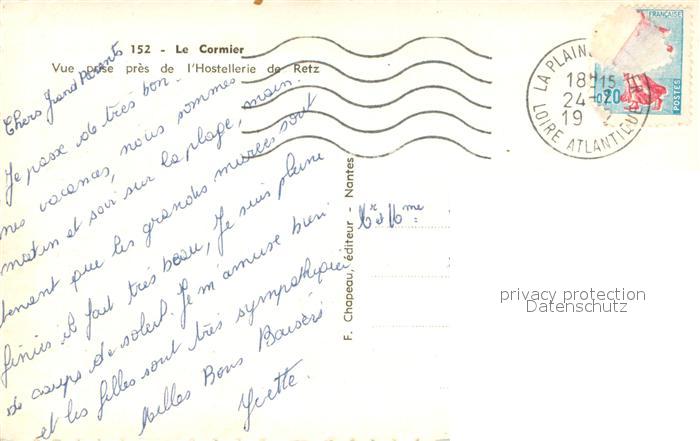 152 - Le Cormier
Vue prise près de l'Hostellerie de Retz
Chers Grand Parents
Je passe de très bon-
nes vacances, nous sommes
matin et soir sur la plage, main-
tenant que les grandes marées sont
finies il fait très beau, Je suis pleine
de coups de soleil. Je m'amuse bien
et les filles sont très sympathiques
Milles Bons Baisers
Yvette.
F. Chapeau, éditeur - Nantes
Mr et Mme
FRANÇAISE
0,20
POSTES
LA PLAINE
18H15
24-
19
LOIRE ATLANTIQUE
privacy protection
Datenschutz